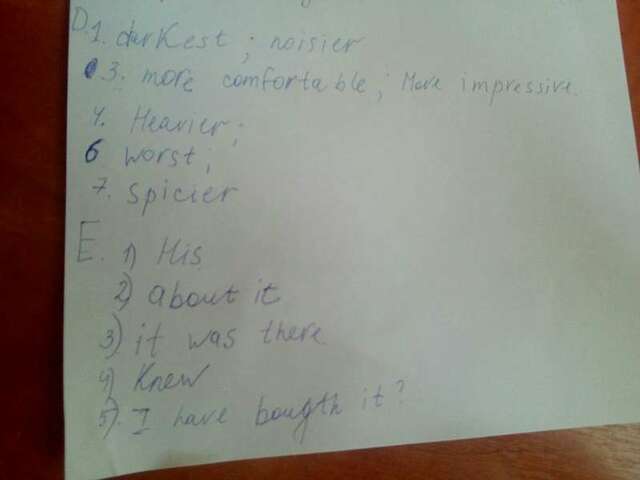 D.1. darKest ; noisier
3. more comfortable; More impressive.
4. Heavier;
6 worst;
7. spicier
E. 1) His
2) about it
3) it was there
4) Knew
5). I have bougth it?